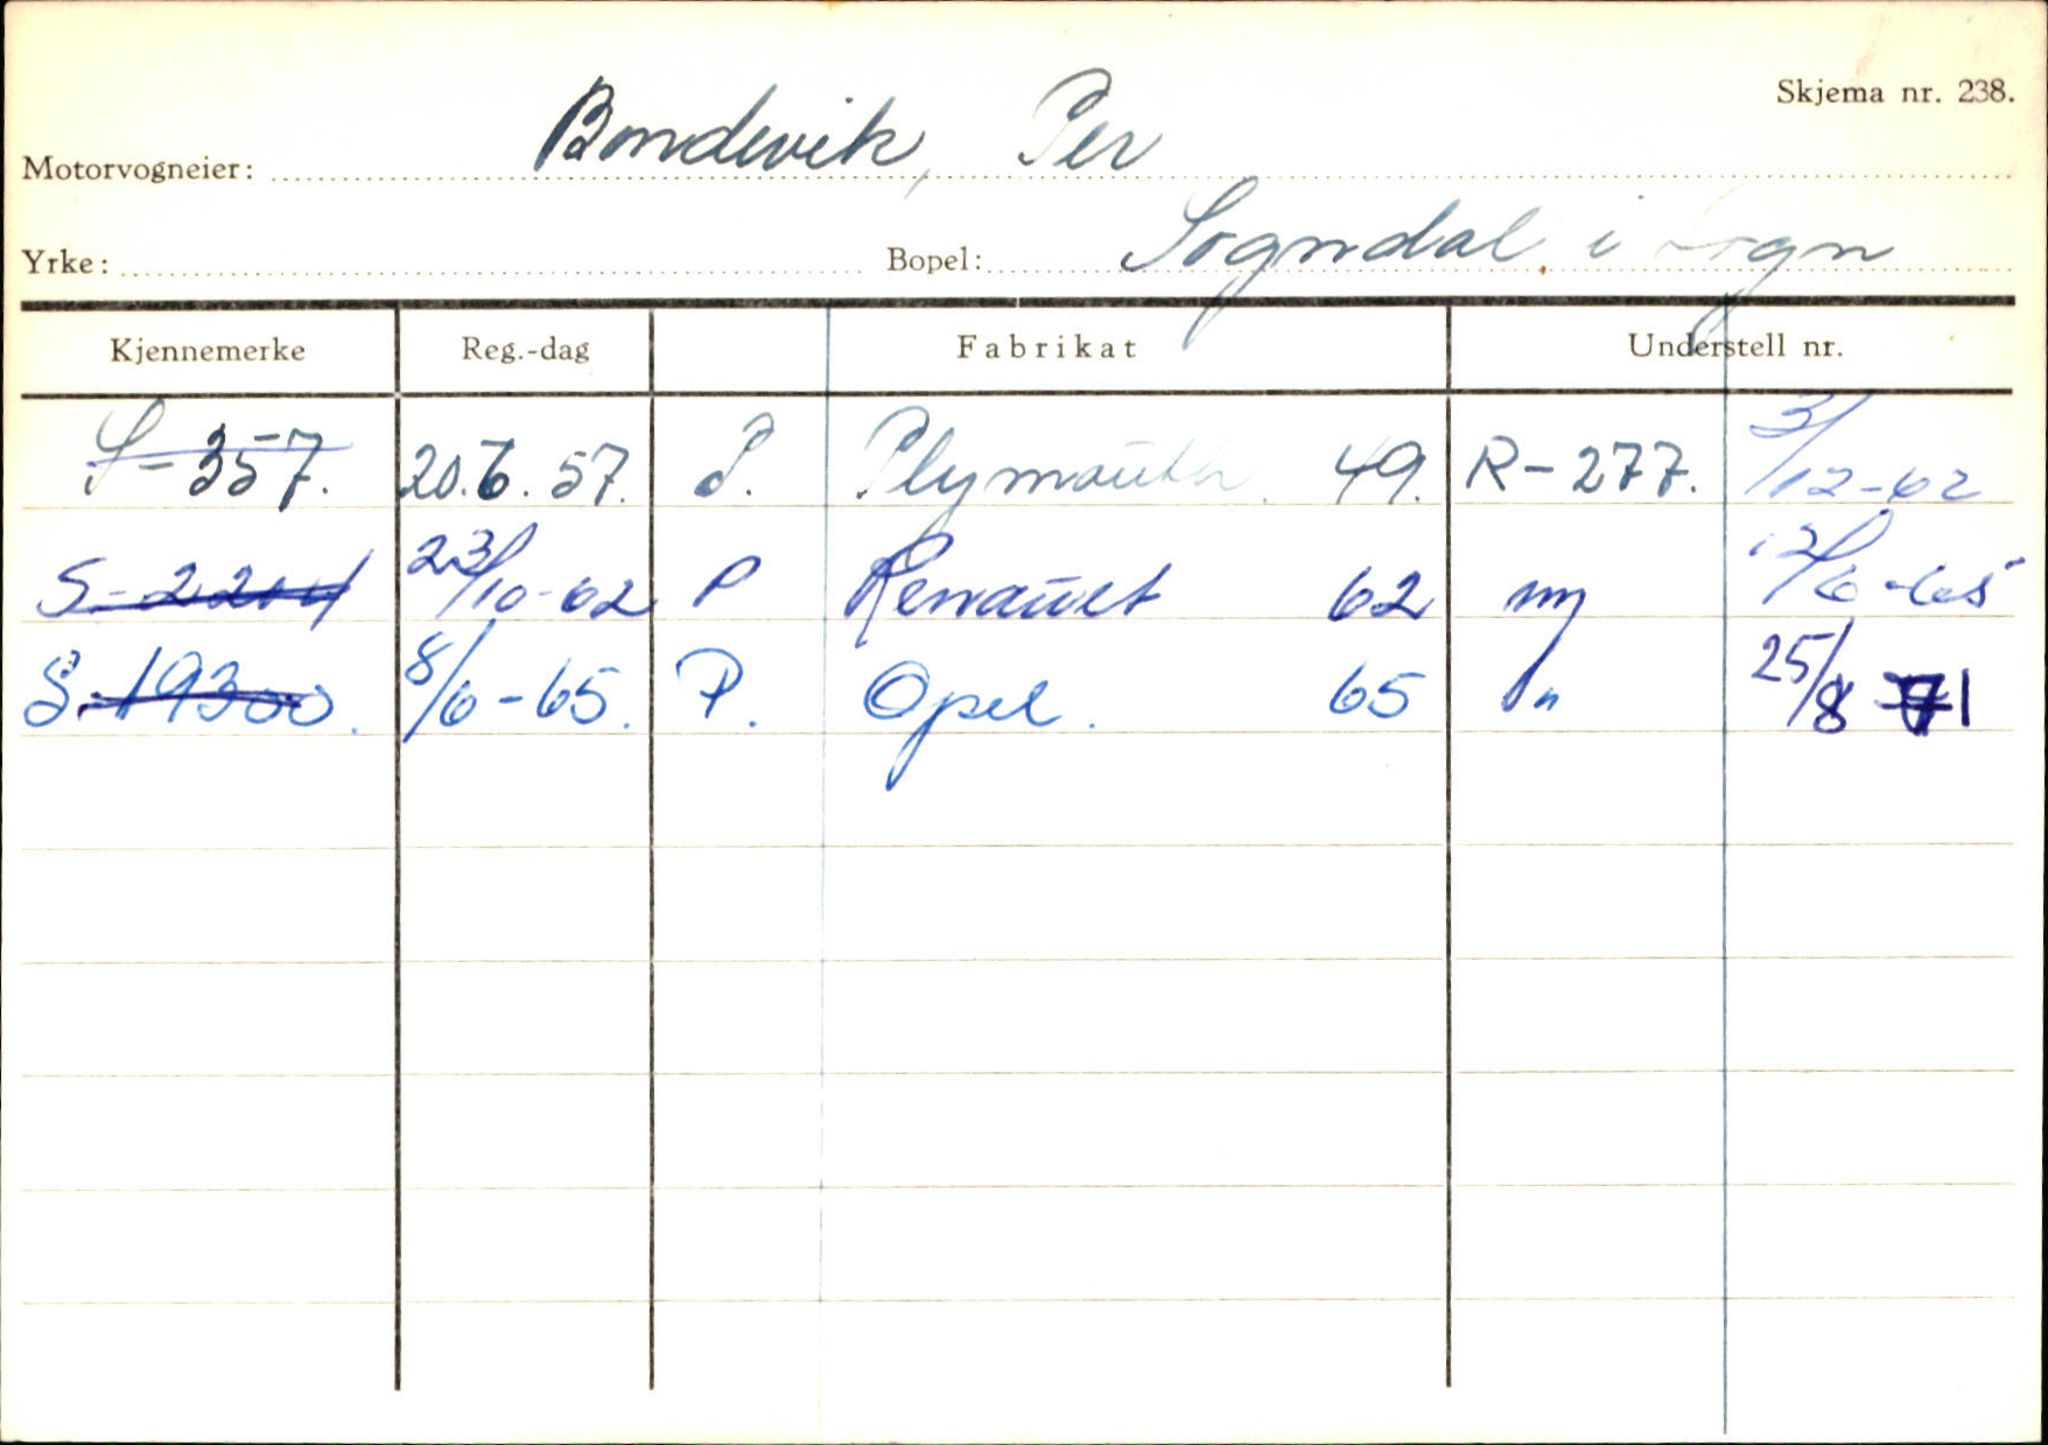 Skjema nr. 238.
Motorvogneier: Bondevik, Per
Yrke: Bopel: Sogndal i Sogn
Kjennemerke Reg.-dag Fabrikat Understell nr.
S-357. 20.6.57. P. Plymouth. 49. R-277. 3/12-62
S-2204 23/10-62 P Renault 62 ny 12/6-65
S-19300. 8/6-65. P. Opel. 65 " 25/8 71